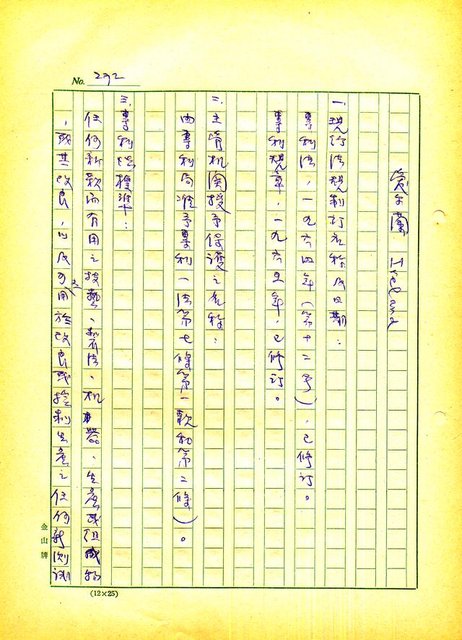 No. 292
愛尔蘭
一. 現行法規制訂名称及日期：
專利法，一九六四年（第十二号），已修訂。
專利規章，一九六五年，已修訂。
二. 主管机関授予保護之名称：
由專利局准予專利（法第七條第一款和第二條）。
三. 專利批准：
任何新款而有用之技藝、方法、机器、生產或組織物
，或其改良，以及可用於改良或控制生產之任何新測試
金山牌
(12×25)